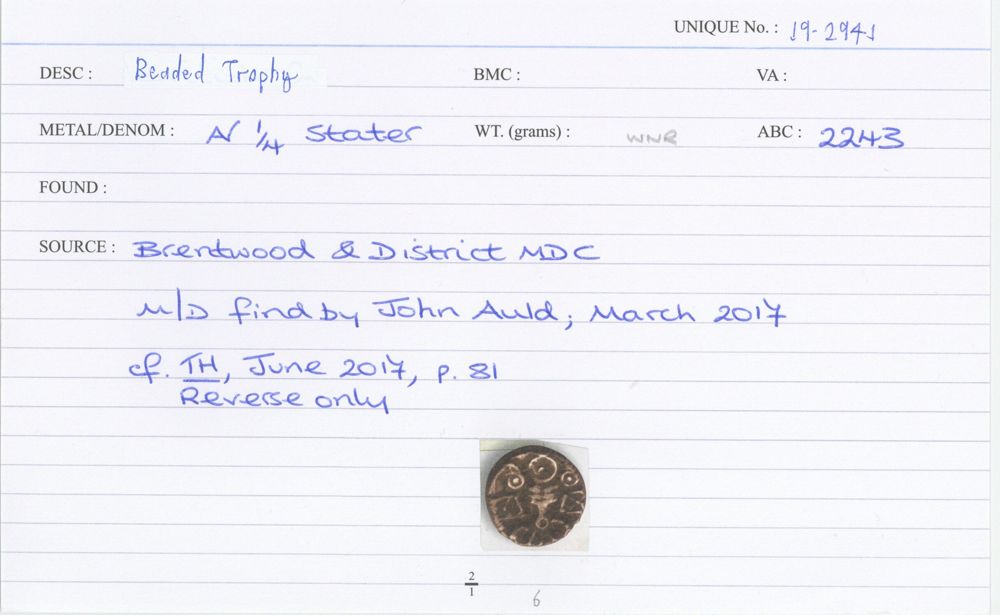 UNIQUE No. : 19-2941
DESC : Beaded Trophy BMC : VA :
METAL/DENOM : AV 1/4 Stater WT. (grams) : WNR ABC : 2243
FOUND :
SOURCE : Brentwood & District MDC
M/D find by John Auld; March 2017
cf. TH, June 2017, p. 81
Reverse only
2/1
6